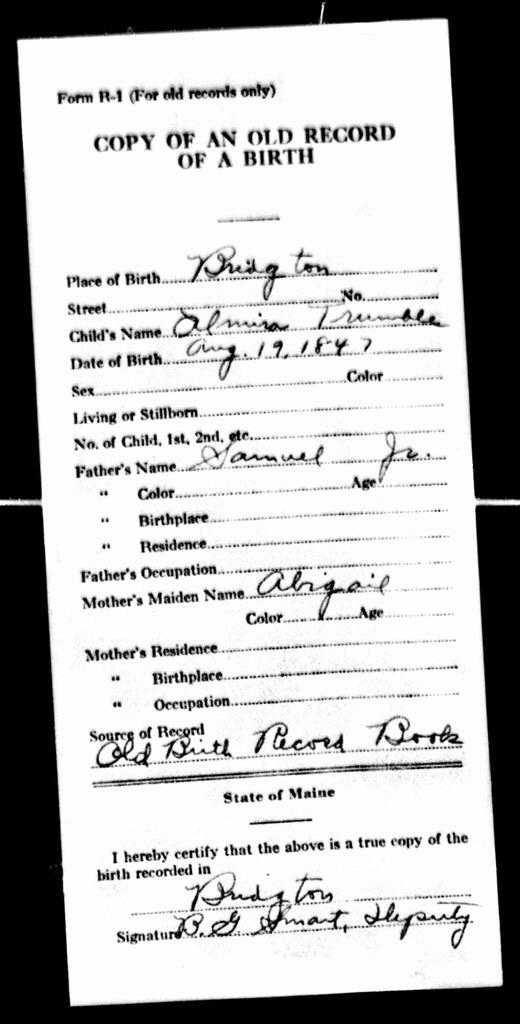 Form R-1 (For old records only)
COPY OF AN OLD RECORD
OF A BIRTH
Place of Birth Bridgton
Street No.
Child's Name Almira Trumble
Date of Birth Aug. 19, 1847
Sex Color
Living or Stillborn
No. of Child, 1st, 2nd, etc.
Father's Name Samuel Jr.
" Color Age
" Birthplace
" Residence
Father's Occupation
Mother's Maiden Name Abigail
Color Age
Mother's Residence
" Birthplace
" Occupation
Source of Record
Old Birth Record Book
State of Maine
I hereby certify that the above is a true copy of the
birth recorded in
Bridgton
Signature B. G Smart, Deputy